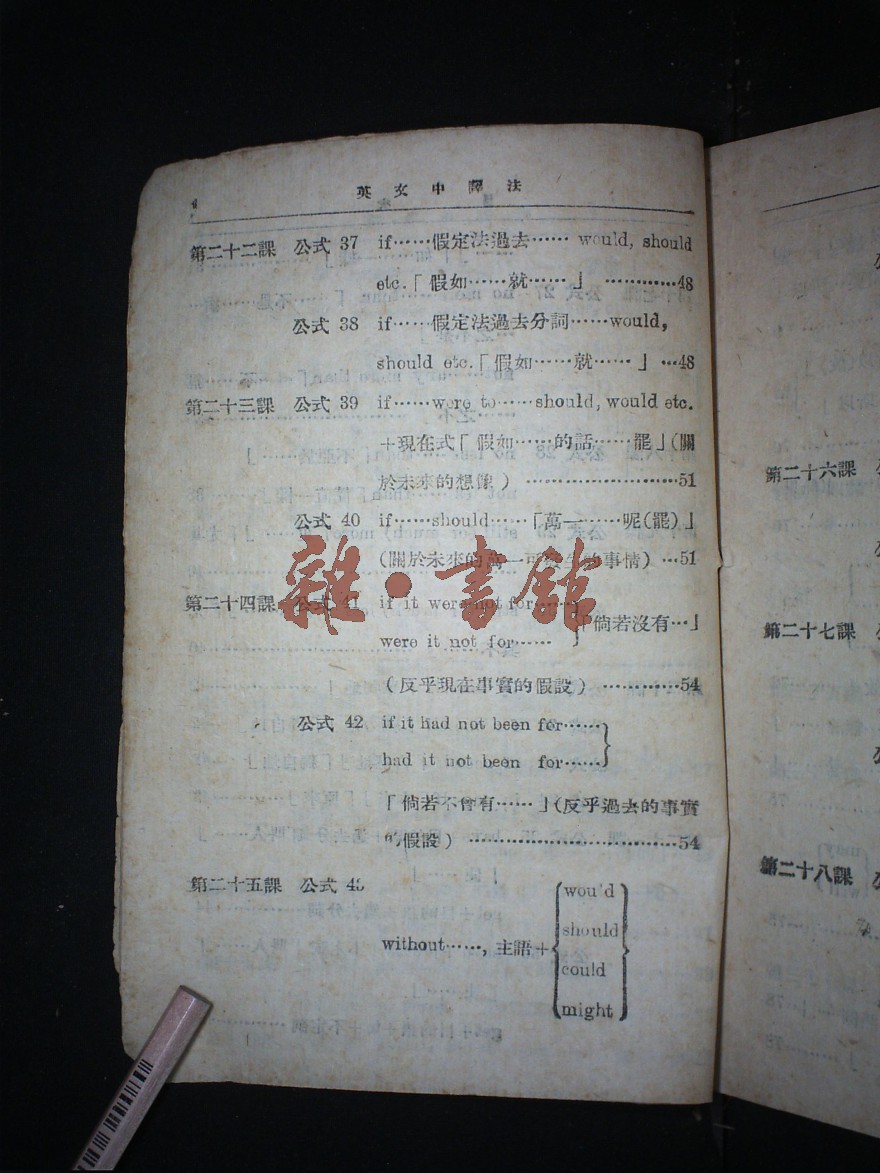 英文中譯法
第二十二課 公式 37 if……假定法過去…… would, should
etc.「假如……就……」 …………48
公式 38 if……假定法過去分詞……would,
should etc.「假如……就……」…48
第二十三課 公式 39 if……were to……should, would etc.
+現在式「假如……的話……罷」(關
於未來的想像) ……………………51
公式 40 if……should……「萬一……呢(罷)」
(關於未來的萬一可發生的事情)…51
第二十四課 公式 41 if it were not for……
were it not for……
「倘若沒有…」
(反乎現在事實的假設) …………54
公式 42 if it had not been for……
had it not been for……
「倘若不曾有……」(反乎過去的事實
的假設) ……………………………54
第二十五課 公式
without……, 主語+
would
should
could
might
雜·書館
第二十六課
第二十七課
第二十八課